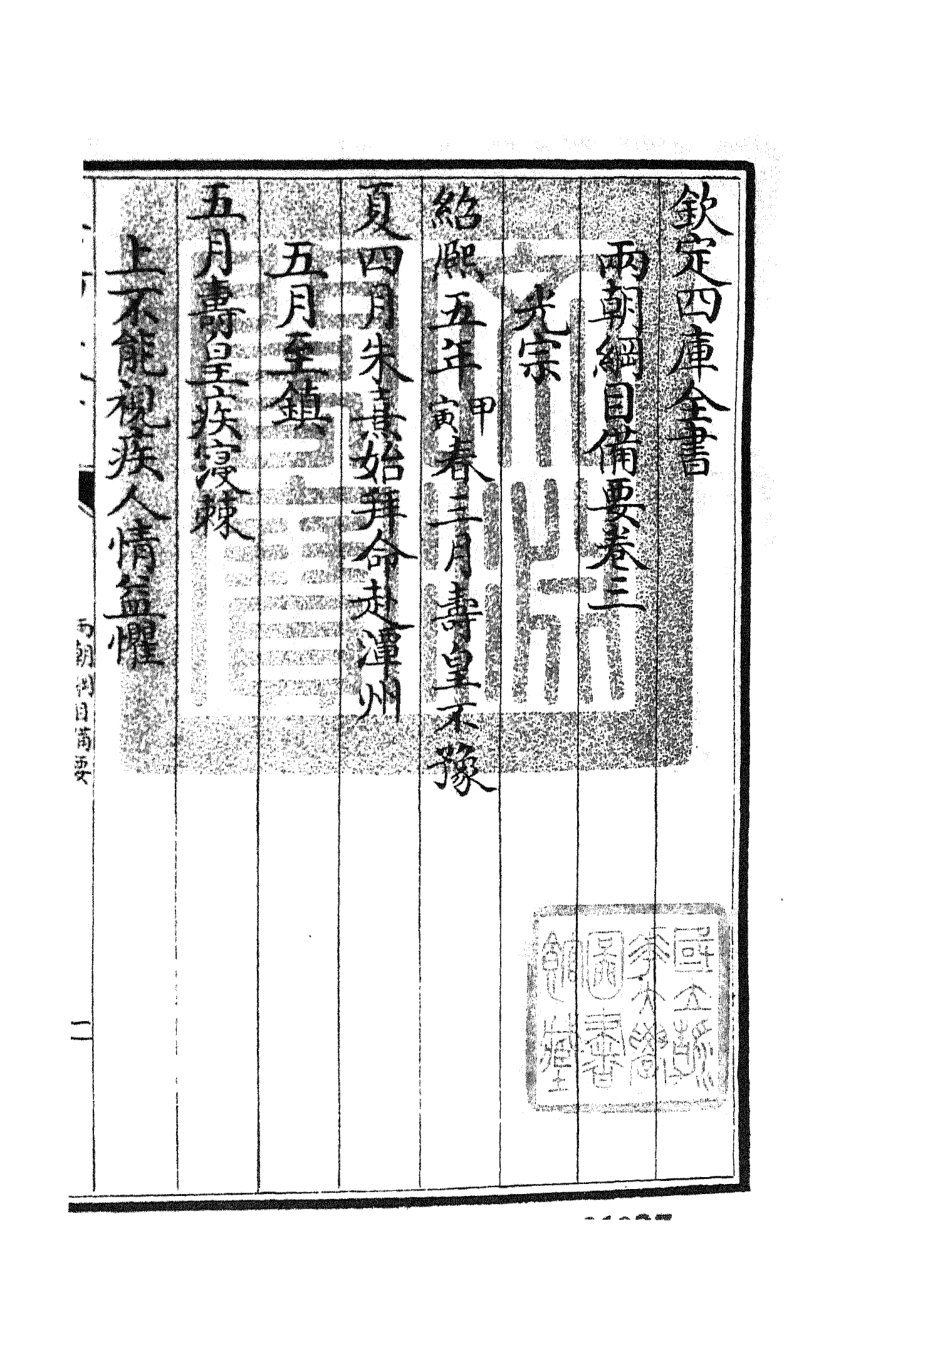 欽定四庫全書
兩朝綱目備要卷三
光宗
紹熙五年甲寅春三月壽皇不豫
夏四月朱熹始拜命赴潭州
五月至鎮
五月壽皇疾寖棘
上不能視疾人情益懼
兩朝綱目備要
二
國立浙江大學圖書館藏